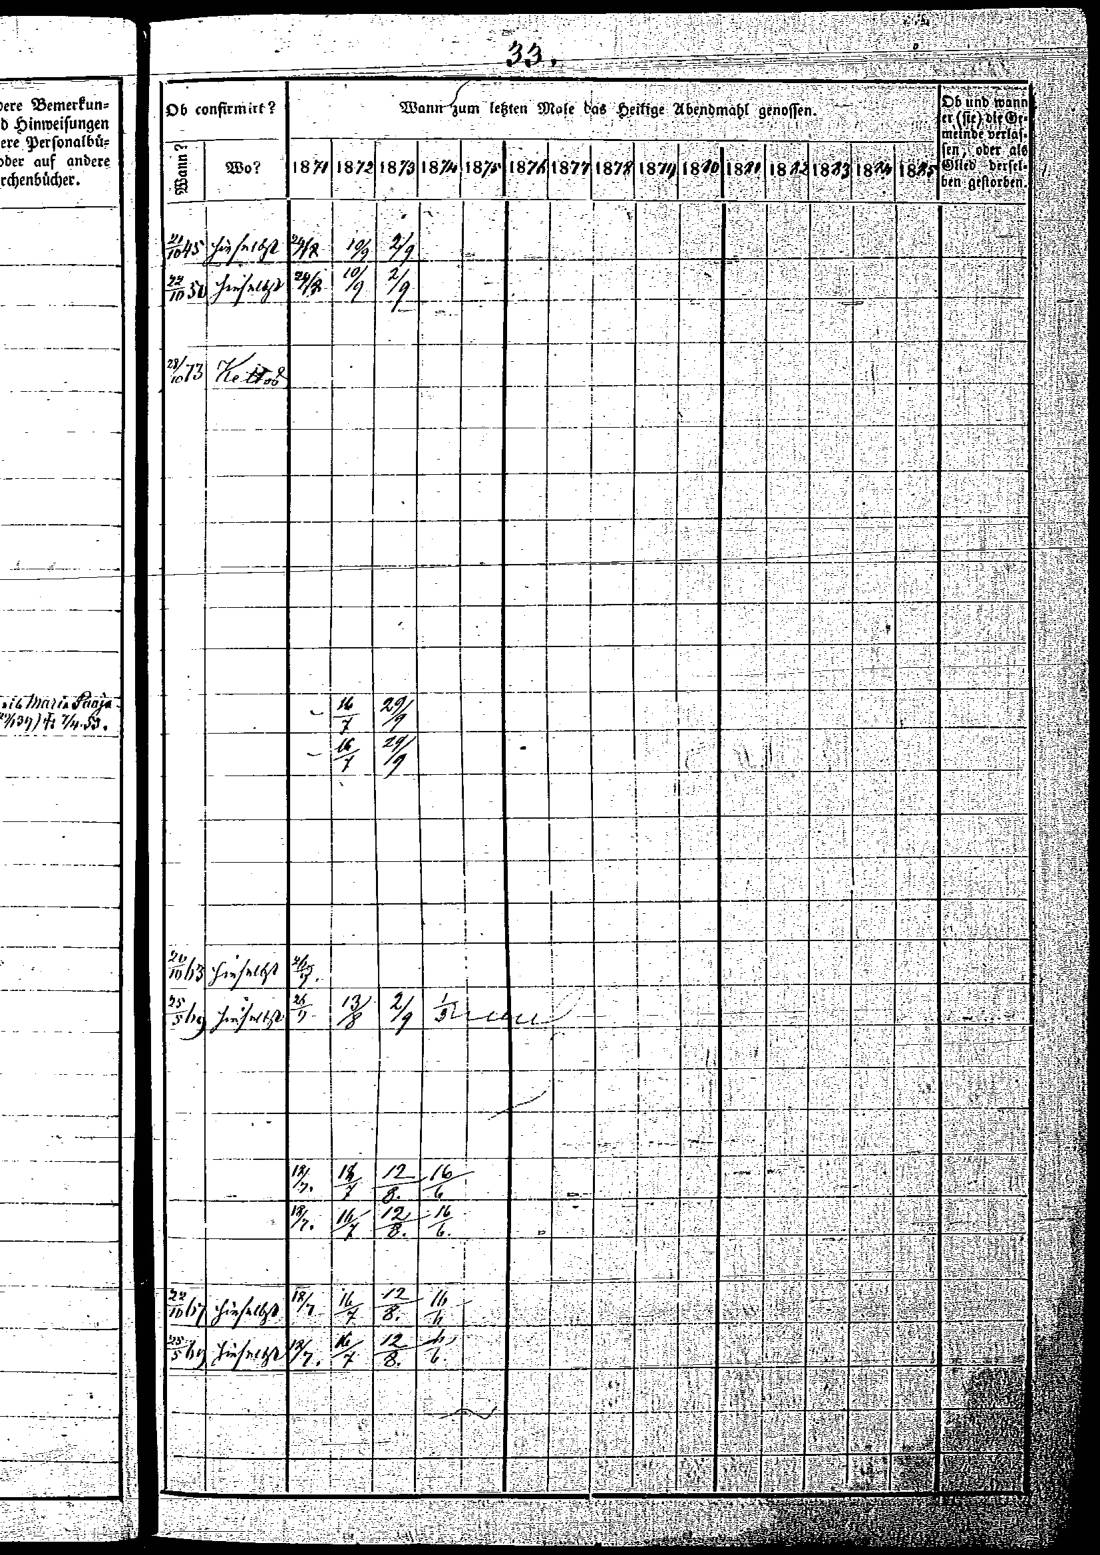 33.
vere Bemerkun-
d Hinweisungen
ere Personalbü-
oder auf andere
rchenbücher.
Ob confirmirt?
Wann zum letzten Male das Heilige Abendmahl genossen.
Ob und wann
er (sie) die Ge-
meinde verlas-
sen, oder als
Glied dersel-
ben gestorben.
Wann? Wo? 1871 1872 1873 1874 1875 1876 1877 1878 1879 1880 1881 1882 1883 1884 1885
21/10 45 hieselbst 24/8 10/9 2/9
22/10 50 hieselbst 24/8 10/9 2/9
28/10 73
Maria
- 16/7 29/9
- 16/7 29/9
20/10 63 hieselbst
25/5 69 hieselbst 13/8 2/9
18/7. 16/7 12/8. 16/6
18/7. 16/7 12/8. 16/6.
22/10 67 hieselbst 18/7 16/7 12/8. 16/6
25/5 69 hieselbst 18/7. 16/7 12/8.